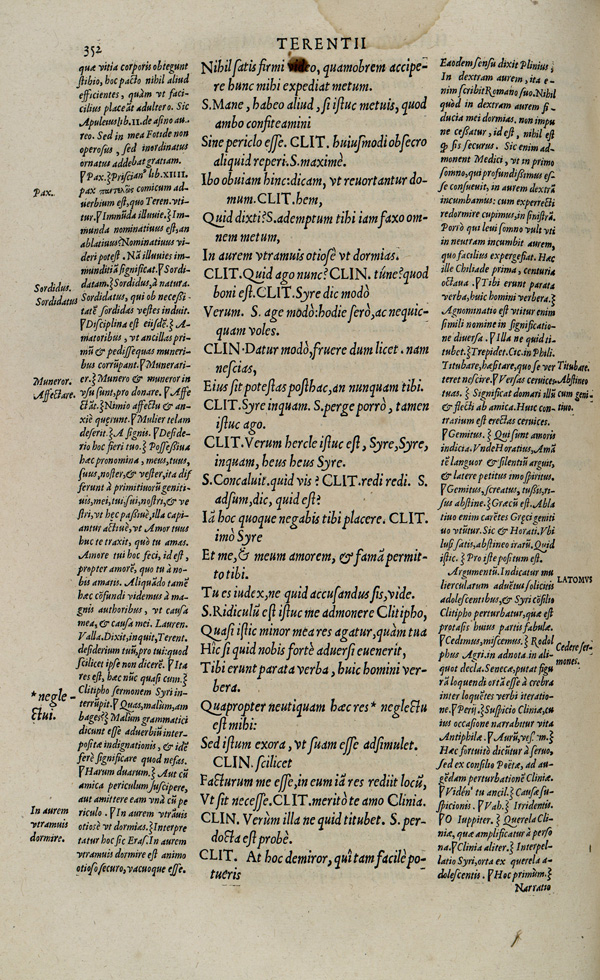 352
TERENTII
quæ vitia corporis obtegunt
stibio, hoc pacto nihil aliud
efficientes, quàm vt faci-
cilius placeāt adultero. Sic
Apuleius lib. II. de asino au-
reo. Sed in mea Fotide non
operosus, sed inordinatus
ornatus addebat gratiam.
Pax.
¶Pax.⸹Priscian⁹ lib. XIIII.
pax comicum ad-
uerbium est, quo Teren. vti-
tur.¶Immūda illuuie.⸹Im-
munda nominatiuus est, an
ablatiuus? Nominatiuus vi-
deri potest. Nā illuuies im-
munditiā significat.¶Sordi-
Sordidus.
datam.⸹Sordidus, à natura.
Sordidatus
Sordidatus, qui ob necessi-
tatē sordidas vestes induit.
¶Disciplina est eiusdē.⸹A-
matoribus, vt ancillas pri-
mū & pedissequas muneri-
bus corrūpant.¶Munerari-
Muneror.
er.⸹Munero & muneror in
vsu sunt, pro donare.¶Affe
Affectare.
ctāt.⸹Nimio affectu & an-
xiè quęrunt.¶Mulier telam
deserit.⸹A signis.¶Deside-
rio hoc fieri tuo.⸹Possessiua
hæc pronomina, meus, tuus,
suus, noster, & vester, ita dif
ferunt à primitiuorū geniti-
uis, mei, tui, sui, nostri, & ve
stri, vt hęc passiuè, illa capi-
antur actiuè, vt Amor tuus
huc te traxit, quò tu amas.
Amore tui hoc feci, id est,
propter amorē, quo tu à no-
bis amaris. Aliquādo tamē
hæc cōfundi videmus à ma-
gnis authoribus, vt causa
mea, & causa mei. Lauren.
Valla. Dixit, inquit, Terent.
desiderium tuū, pro tui: quod
scilicet ipse non dicerē.¶Ita
res est, hæc nūc quasi cum.⸹
*negle-
Clitipho sermonem Syri in-
ctui.
terrūpit.¶Quas, malùm, am
bages?⸹Malùm grammatici
dicunt esse aduerbiū inter-
positæ indignationis, & idē
ferè significare quod nefas.
¶Harum duarum.⸹Aut cū
amica periculum suscipere,
aut amittere eam vnà cū pe
In aurem
riculo.¶In aurem vtrāuis
vtramuis
otiosè vt dormias.⸹Interpre
dormire.
tatur hoc sic Eras. In aurem
vtramuis dormire est animo
otioso, securo, vacuoque esse.
Nihil satis firmi video, quamobrem accipe-
re hunc mihi expediat metum.
S. Mane, habeo aliud, si istuc metuis, quod
ambo confiteamini
Sine periclo esse. CLIT. huiusmodi obsecro
aliquid reperi. S. maximè.
Ibo obuiam hinc: dicam, vt reuortantur do-
mum. CLIT. hem,
Quid dixti? S. ademptum tibi iam faxo om-
nem metum,
In aurem vtramuis otiosè vt dormias.
CLIT. Quid ago nunc? CLIN. túne? quod
boni est. CLIT. Syre dic modò
Verum. S. age modò: hodie serò, ac nequic-
quam voles.
CLIN. Datur modò, fruere dum licet. nam
nescias,
Eius sit potestas posthac, an nunquam tibi.
CLIT. Syre inquam. S. perge porrò, tamen
istuc ago.
CLIT. Verum hercle istuc est, Syre, Syre,
inquam, heus heus Syre.
S. Concaluit. quid vis? CLIT. redi redi. S.
adsum, dic, quid est?
Iā hoc quoque negabis tibi placere. CLIT.
imò Syre
Et me, & meum amorem, & famā permit-
to tibi.
Tu es iudex, ne quid accusandus sis, vide.
S. Ridiculū est istuc me admonere Clitipho,
Quasi istic minor mea res agatur, quàm tua
Hîc si quid nobis fortè aduersi euenerit,
Tibi erunt parata verba, huic homini ver-
bera.
Quapropter neutiquam hæc res* neglectu
est mihi:
Sed istum exora, vt suam esse adsimulet.
CLIN. scilicet
Facturum me esse, in eum iā res rediit locū,
Vt sit necesse. CLIT. meritò te amo Clinia.
CLIN. Verùm illa ne quid titubet. S. per-
docta est probè.
CLIT. At hoc demiror, quî tam facilè po-
tueris
Eaodem sensu dixit Plinius,
In dextram aurem, ita e-
nim scribit Romano suo. Nihil
quòd in dextram aurem fi-
ducia mei dormias. non impu
ne cessatur, id est, nihil est
ꝙ sis securus. Sic enim ad-
monent Medici, vt in primo
somno, qui profundissimus es-
se consueuit, in aurem dextrā
incumbamus: cum experrecti
redormire cupimus, in sinistrā.
Porrò qui leui somno vult vti
in neutram incumbit aurem,
quo facilius expergefiat. Hæc
ille Chiliade prima, centuria
octaua.¶Tibi erunt parata
verba, huic homini verbera.⸹
Agnominatio est vtitur enim
simili nomine in significatio-
ne diuersa.¶Illa ne quid ti-
tubet.⸹Trepidet. Cic. in Phili.
Titubare, hæsitare, quo se ver
Titubare.
teret nescire.¶Versas ceruices
Abstineo
tuas.⸹Significat domari illū
cum geni-
& flecti ab amica. Huic con-
tiuo.
trarium est erectas ceruices.
¶Gemitus.⸹Qui sunt amoris
indicia. Vnde Horatius, Amā
tē languor & silentiū arguit,
& latere petitus imo spiritus.
¶Gemitus, screatus, tussis, ri-
sus abstine.⸹Græcū est. Abla
tiuo enim carētes Gręci geniti
uo vtūtur. Sic & Horati. Vbi
lusu satis, abstineo irarū. Quid
istic.⸹Pro iste positum est.
Argumentū. Indicatur mu
LATOMVS
lierculum aduētus: solicitis
adolescentibus, & Syri cōsilio
Clitipho perturbatur, quæ est
protasis huius partis fabulæ.
¶Cedimus, miscemus.⸹Rodol
Cedere ser-
phus Agri. in adnota. in ali-
mones.
quot decla. Senecæ, putat figu
rā loquendi ortā esse à crebra
inter loquētes verbi iteratio-
ne.¶Perij.⸹Suspicio Cliniæ, cu
ius occasione narrabitur vita
Antiphilæ.¶Aurū, vesī. m.⸹
Hæc fortuitò dicūtur à seruo,
sed ex consilio Poëtæ, ad au-
gēdam perturbationē Cliniæ.
¶Vidēn' tu ancil.⸹Causa su-
spicionis.¶Vah.⸹Irridentis.
¶O Iuppiter.⸹Querela Cli-
niæ, quæ amplificatur à perso
na.¶Clinia aliter.⸹Interpel-
latio Syri, orta ex querela a-
dolescentis.¶Hoc primùm.⸹
Narratio